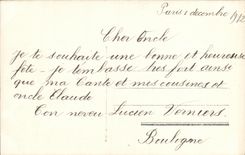 Paris 1 decembre
Cher Oncle
Je te souhaite une bonne et heureuse
fete. je tembrasse tres fort ainsi
que ma tante et mes cousines et
oncle Claude
Ton neveu Lucien
Boulogne